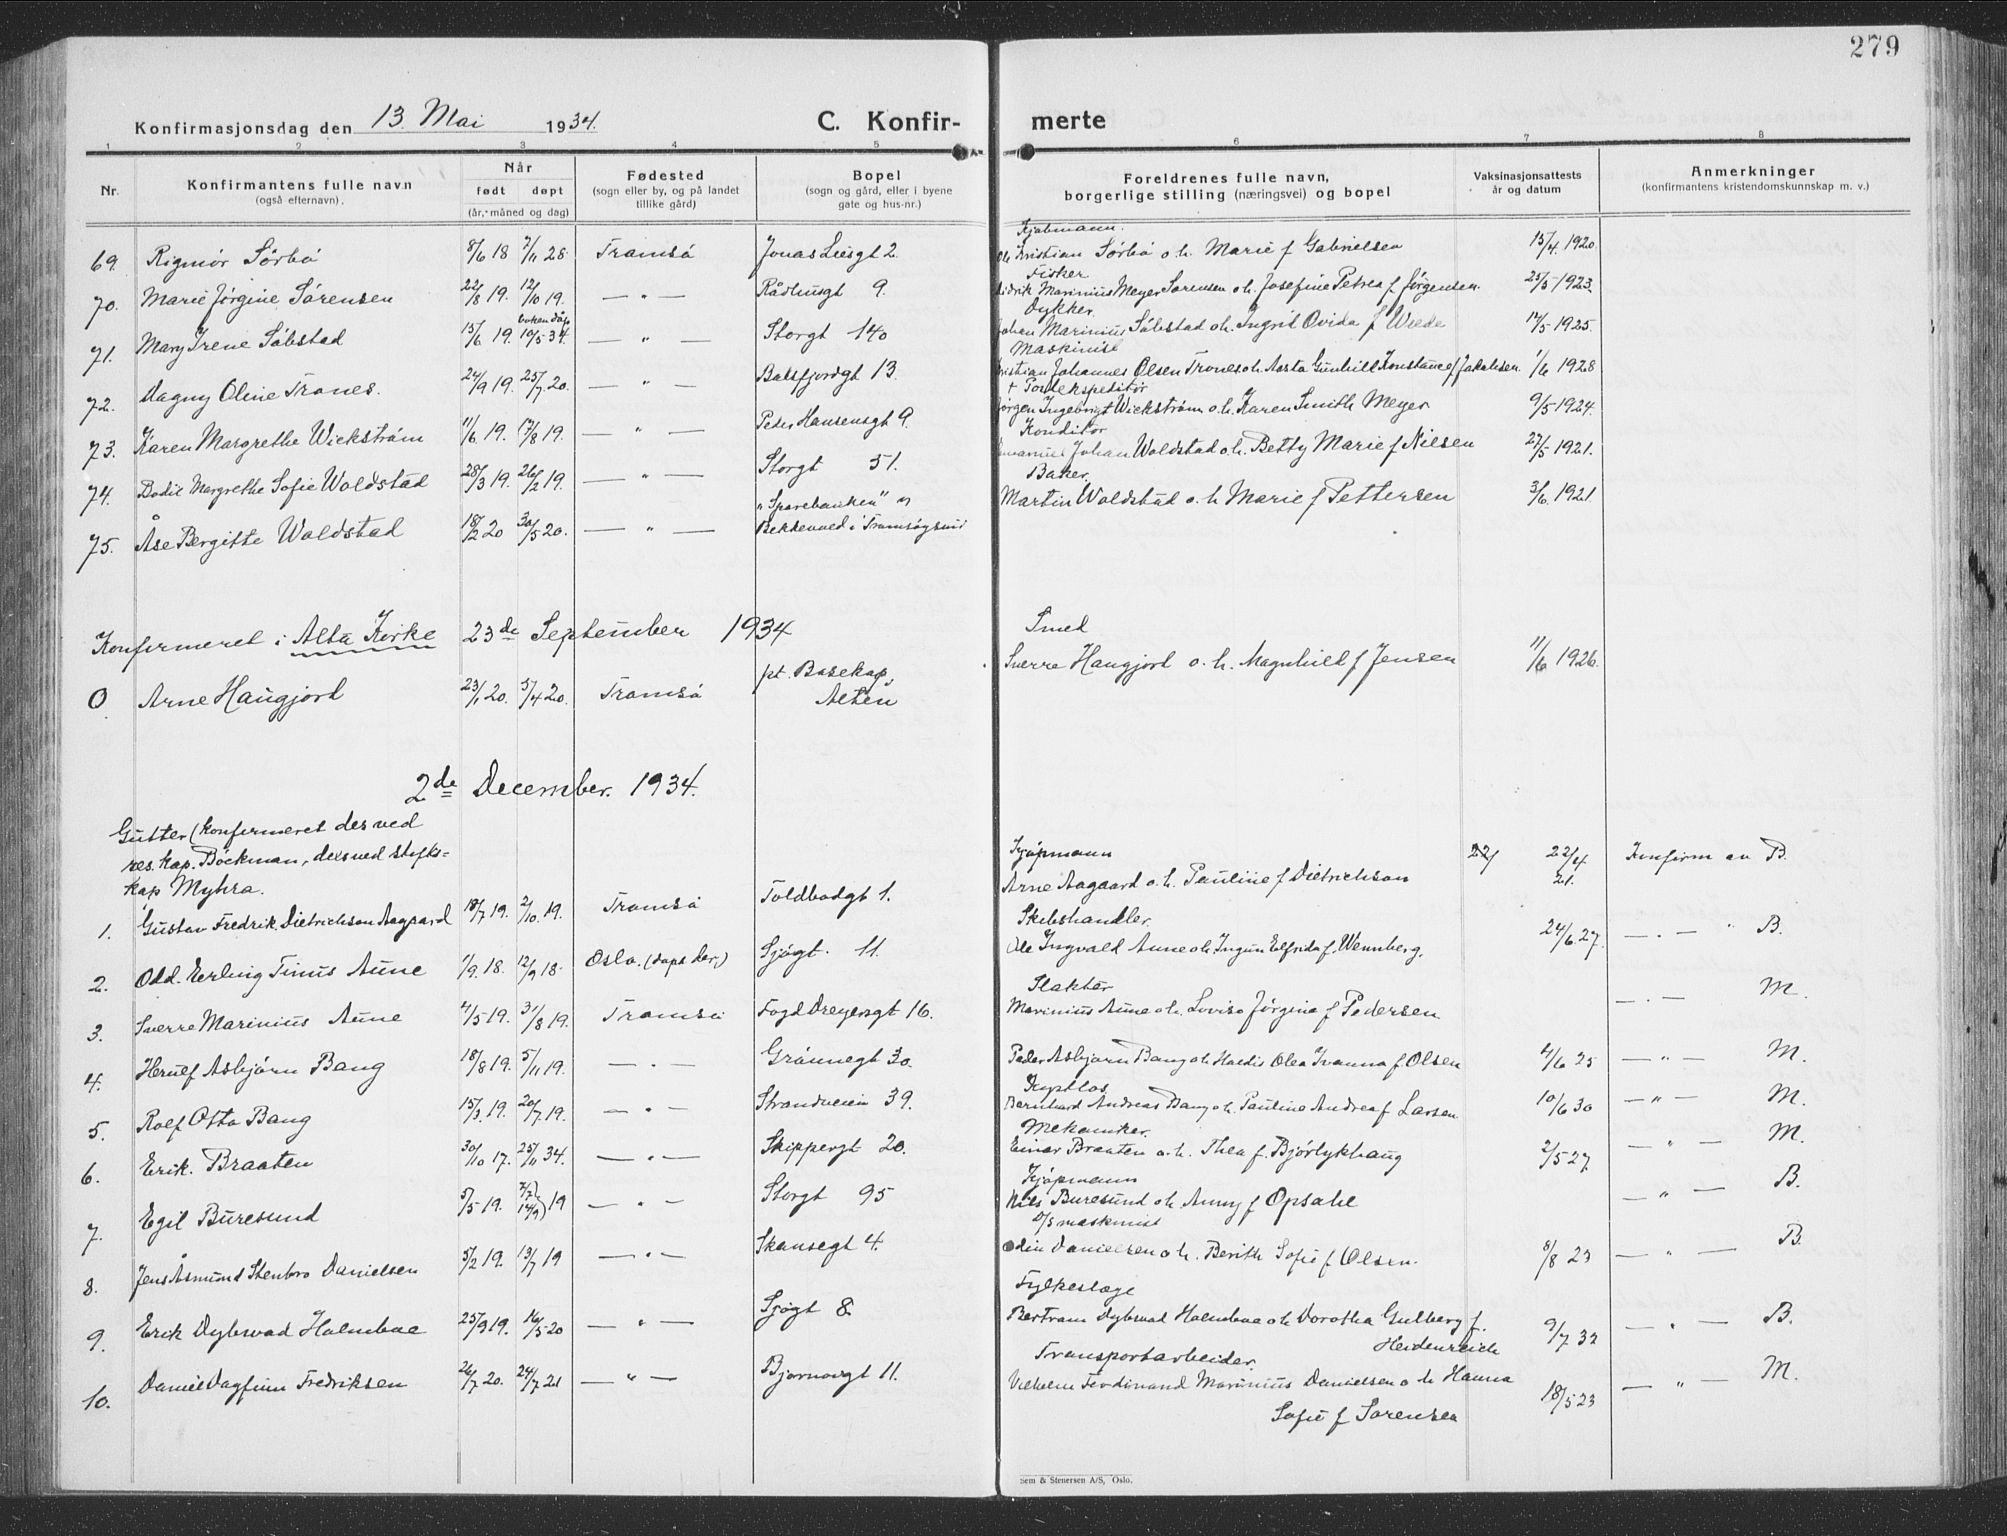 279
Konfirmasjonsdag den 13. Mai 1934.
C. Konfir-merte
1 2 3 4 5 6 7 8
Nr.
Konfirmantens fulle navn
(også efternavn).
Når
født døpt
(år, måned og dag)
Fødested
(sogn eller by, og på landet
tillike gård)
Bopel
(sogn og gård, eller i byene
gate og hus-nr.)
Foreldrenes fulle navn,
borgerlige stilling (næringsvei) og bopel
Vaksinasjonsattests
år og datum
Anmerkninger
(konfirmantens kristendomskunnskap m. v.)
Kjøbmann.
69. Rigmor Sörbö 8/6 18 7/11 28. Tromsö Jonas Liesgt 2. Kristian Sörbö o. h. Marie f Gabrielsen 15/4 1920.
Fisker
70. Marie Jørgine Sørensen 22/8 19. 12/10 19. — " — Rådhusgt 9. Didrik Marinius Meyer Sørensen o. h. Josefine Petrea f. Jørgensen. 25/5 1923.
Dykker.
71. Mary Irene Sölstad 15/6 19. 10/5-34. — " — Storgt 140 Johan Marinius Sölstad o. h. Ingrid Ovida f Wede 12/5-1925.
Maskinist
72. Dagny Oline Trones. 24/9 19. 25/7 20. — " — Balsfjordgt 13. Kristian Johannes Olsen Trones o. h. Aasta Gunhill Konstance f Jakobsen. 1/6 1928
73. Karen Margrethe Wickstrøm 11/6 19. 17/8 19. — " — Peder Hansensgt 9. Jørgen Ingebrigt Wickstrøm o. h. Karen Smith Meyer 9/5-1924.
Konditor
74. Bodil Margrethe Sofie Woldstad 28/3 19. 26/2 19. — " — Storgt 51. Johan Woldstad o. h. Betty Marie f Nilsen 27/5 1921.
Baker.
75. Åse Bergitte Woldstad 18/2 20 30/5 20. — " — "Sparebanken" Bekkevold i Tromsøysund Martin Woldstad o. h Marie f Pettersen 3/6. 1921.
Konfirmeret i Alta Kirke 23de September 1934
Smed
O Arne Haugjord 23/1 20. 5/4 20. Tromsö pt. Bosekop, Alten Sverre Haugjord o. h. Magnhild f Jensen 11/6 1926.
2de December. 1934.
Gutter (Konfirmeret dels ved
res. kap. Böckman, dels ved stifts-
kap Myhra.
Kjøpmann
1. Gustav Fredrik Dietrichson Aagaard 18/7 19. 2/10. 19. Tromsö Toldbodgt 1. Arne Aagaard o. h. Pauline f Dietrichson 22/4 21. Konfirm av B.
Skibshandler.
2. Odd. Erling Tinus Aune 1/9. 18. 12/9 18. Oslo. (døpt der.) Sjøgt. 11. Ole Ingvald Aune o. h. Ingun Elfrida f. Wennberg. 24/6. 27. — " — B.
Slakter
3. Sverre Marinius Aune 4/5 19. 31/8 19. Tromsö Fogd Dreyersgt 16. Marinius Aune o. h. Lovise Jørgine f Pedersen — " — M.
4. Herluf Asbjørn Bang 18/8 19. 5/11 19. — " — Grönnegt 30. Peder Asbjørn Bang o. h. Haldis Olea Ivanna f. Olsen 4/6 25 — " — M.
5. Rolf Otto Bang 15/3. 19. 20/7. 19. — " — Strandveien 39. Bernhard Andreas Bang o. h. Pauline Andrea f Larsen 10/6 30 — " — M.
Mekaniker.
6. Erik. Braaten 30/10 17. 25/11 34. — " — Skippergt 20. Einar Braaten o. h. Thea f. Bjørlykhaug 2/5 27 — " — M.
Kjøpmann
7. Egil Buresund 5/5 19. 19 — " — Storgt 95 Nils Buresund o. h. Anny f Opsahl — " — B.
D/s maskinist
8. Jens Åsmund Stenbro Danielsen 5/2 19. 13/7 19 — " — Skansegt 4. Odin Danielsen o. h. Berith Sofie f Olsen. 8/8 23 — " — B.
Fylkeslæge
9. Erik Dybwad Holmboe 25/9 19. 16/5-20 — " — Sjøgt 8. Bertram Dybwad Holmboe o. h Dorothea Gulberg f. Heidenreich 9/7 32 — " — B.
Transportarbeider.
10. Daniel Dagfinn Fredriksen 26/7 20. 24/7 21 — " — Bjørnøygt 11. Vilhelm Ferdinand Marinius Danielsen o h Hanna Sofie f Sørensen 18/5 23 — " — M.
Sem & Stenersen A/S, Oslo.